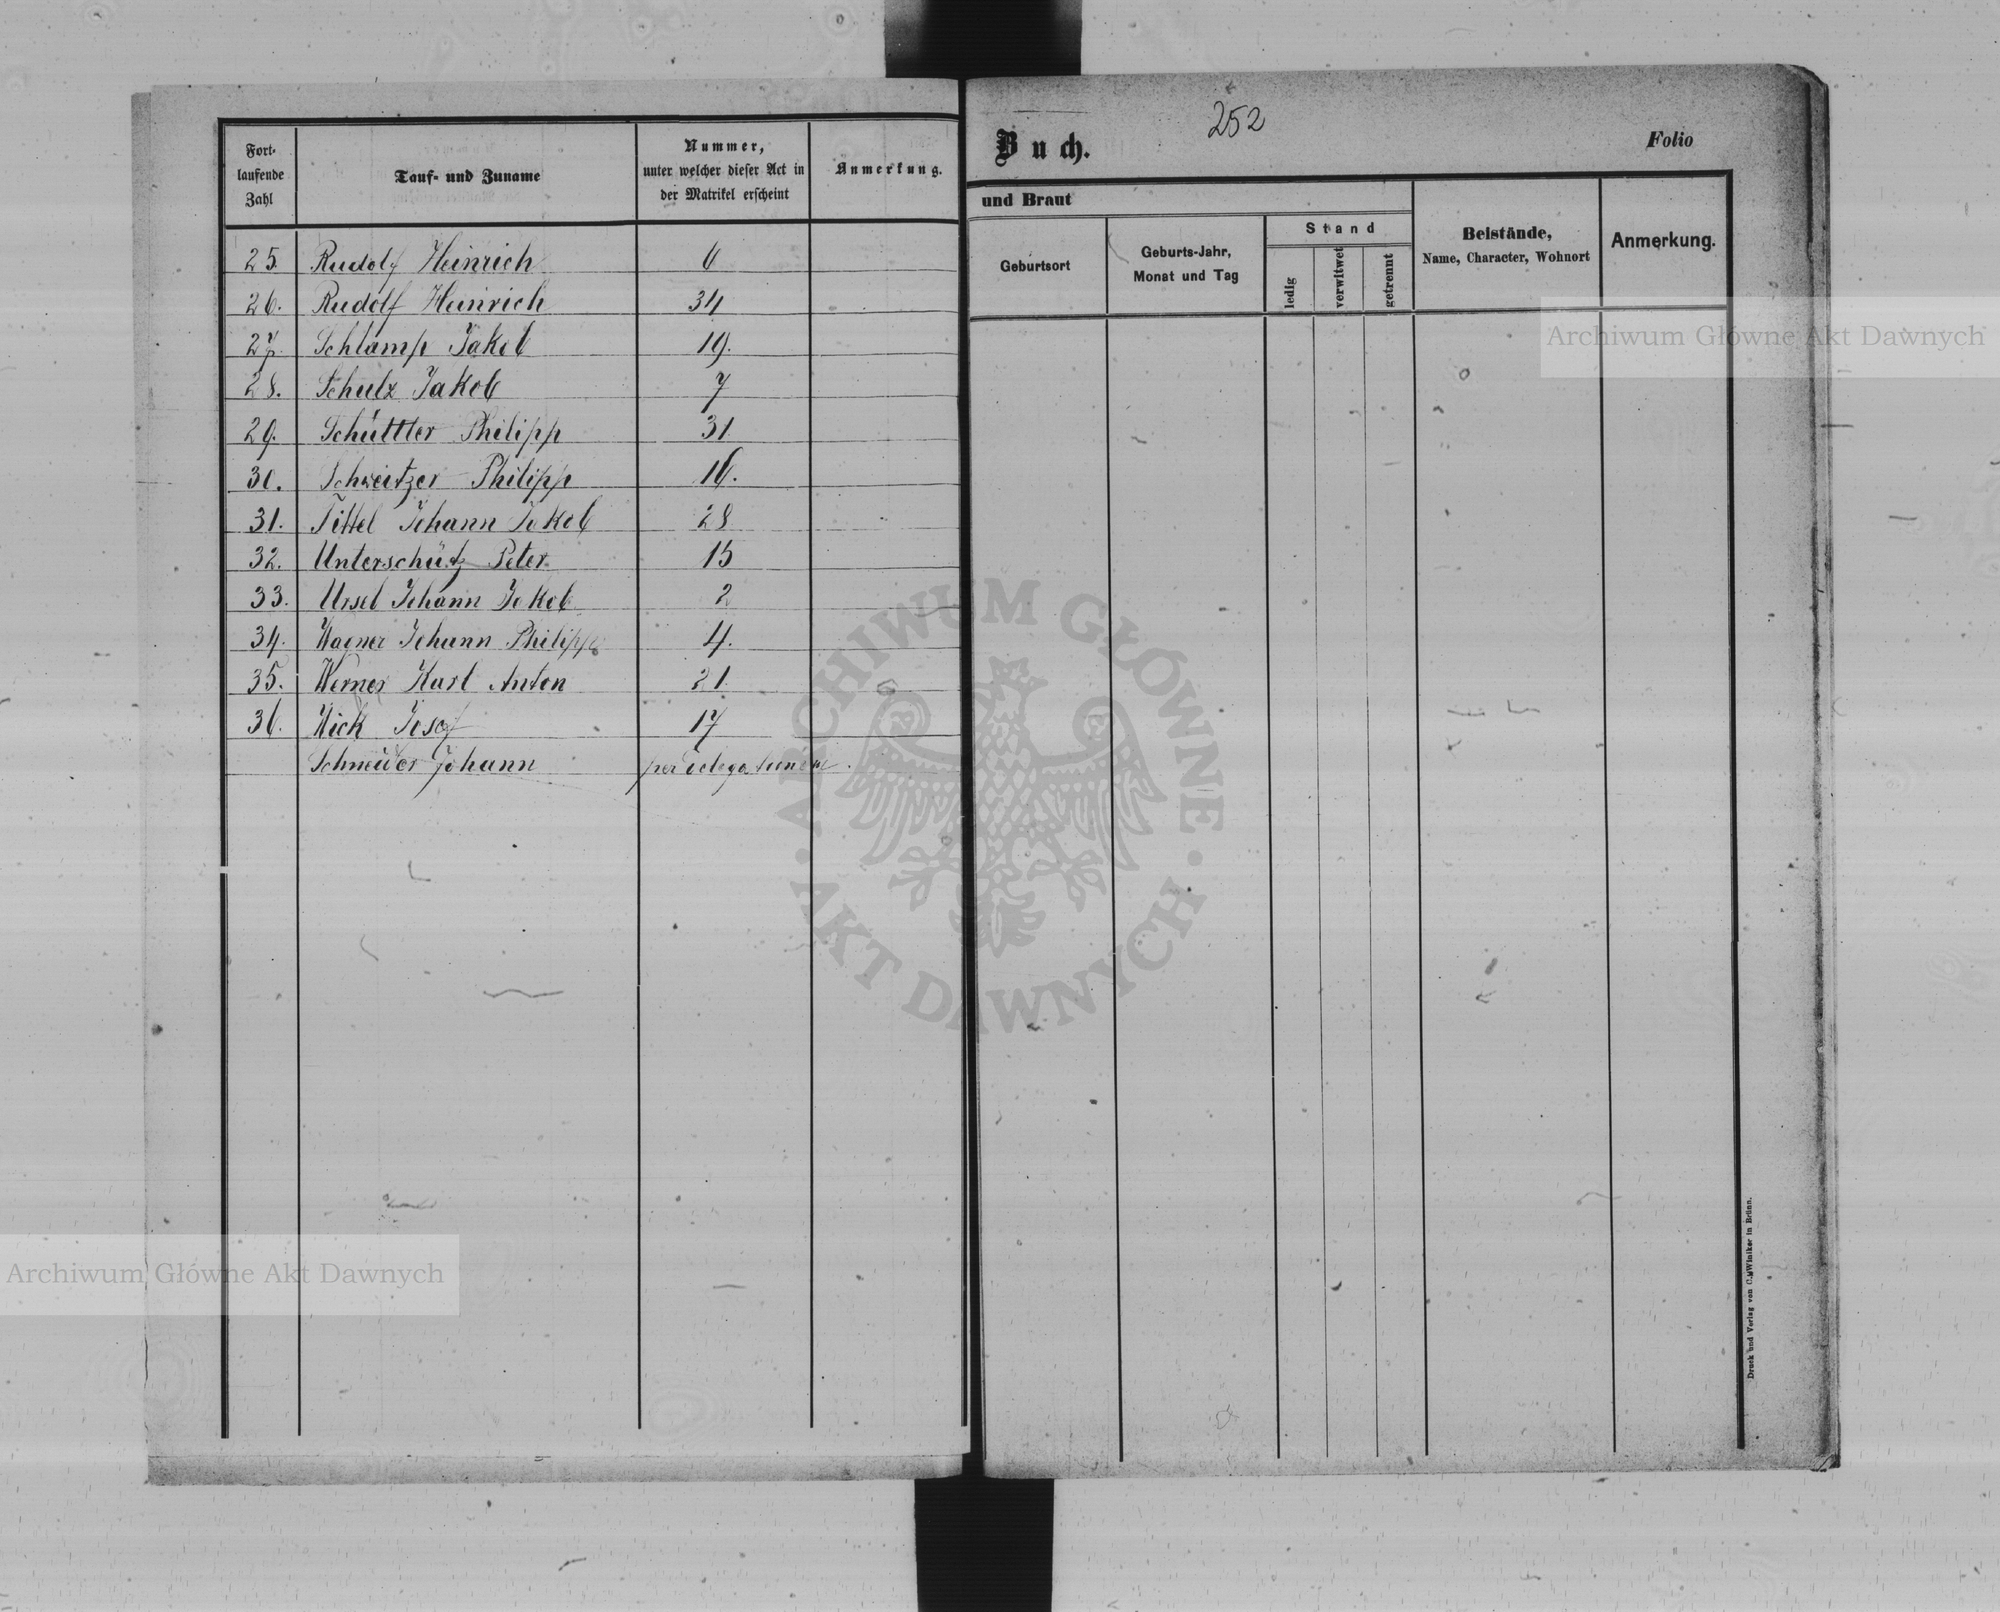 Fort-
laufende
Zahl
Tauf- und Zuname
Nummer,
unter welcher dieser Act in
der Matrikel erscheint
Anmerkung.
25. Rudolf Heinrich 6
26. Rudolf Heinrich 34
27. Schlamp Jakob 19.
28. Schulz Jakob 7
29. Schüttler Philipp 31
30. Schweitzer Philipp 16.
31. Tittel Johann Jakob 28
32. Unterschütz Peter 15
33. Ursel Johann Jakob 2
34. Wagner Johann Philipp 4.
35. Werner Karl Anton 21
36. Wick Josef 17
Schneider Johann per delegationem.
252
Buch.
Folio
und Braut
Geburtsort
Geburts-Jahr,
Monat und Tag
Stand
ledig
verwitwet
getrennt
Beistände,
Name, Character, Wohnort
Anmerkung.
Druck und Verlag von C. Winiker in Brünn.
Archiwum Główne Akt Dawnych
ARCHIWUM GŁÓWNE · AKT DAWNYCH ·
Archiwum Główne Akt Dawnych